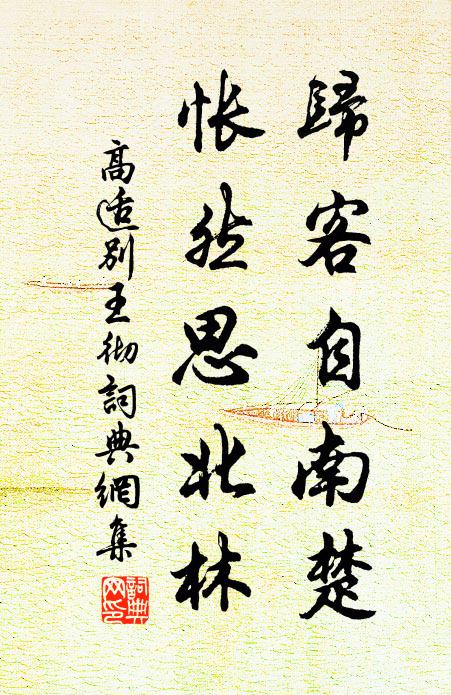 歸客自南楚
悵然思北林
高適別王彻詞典網集
詞典网印